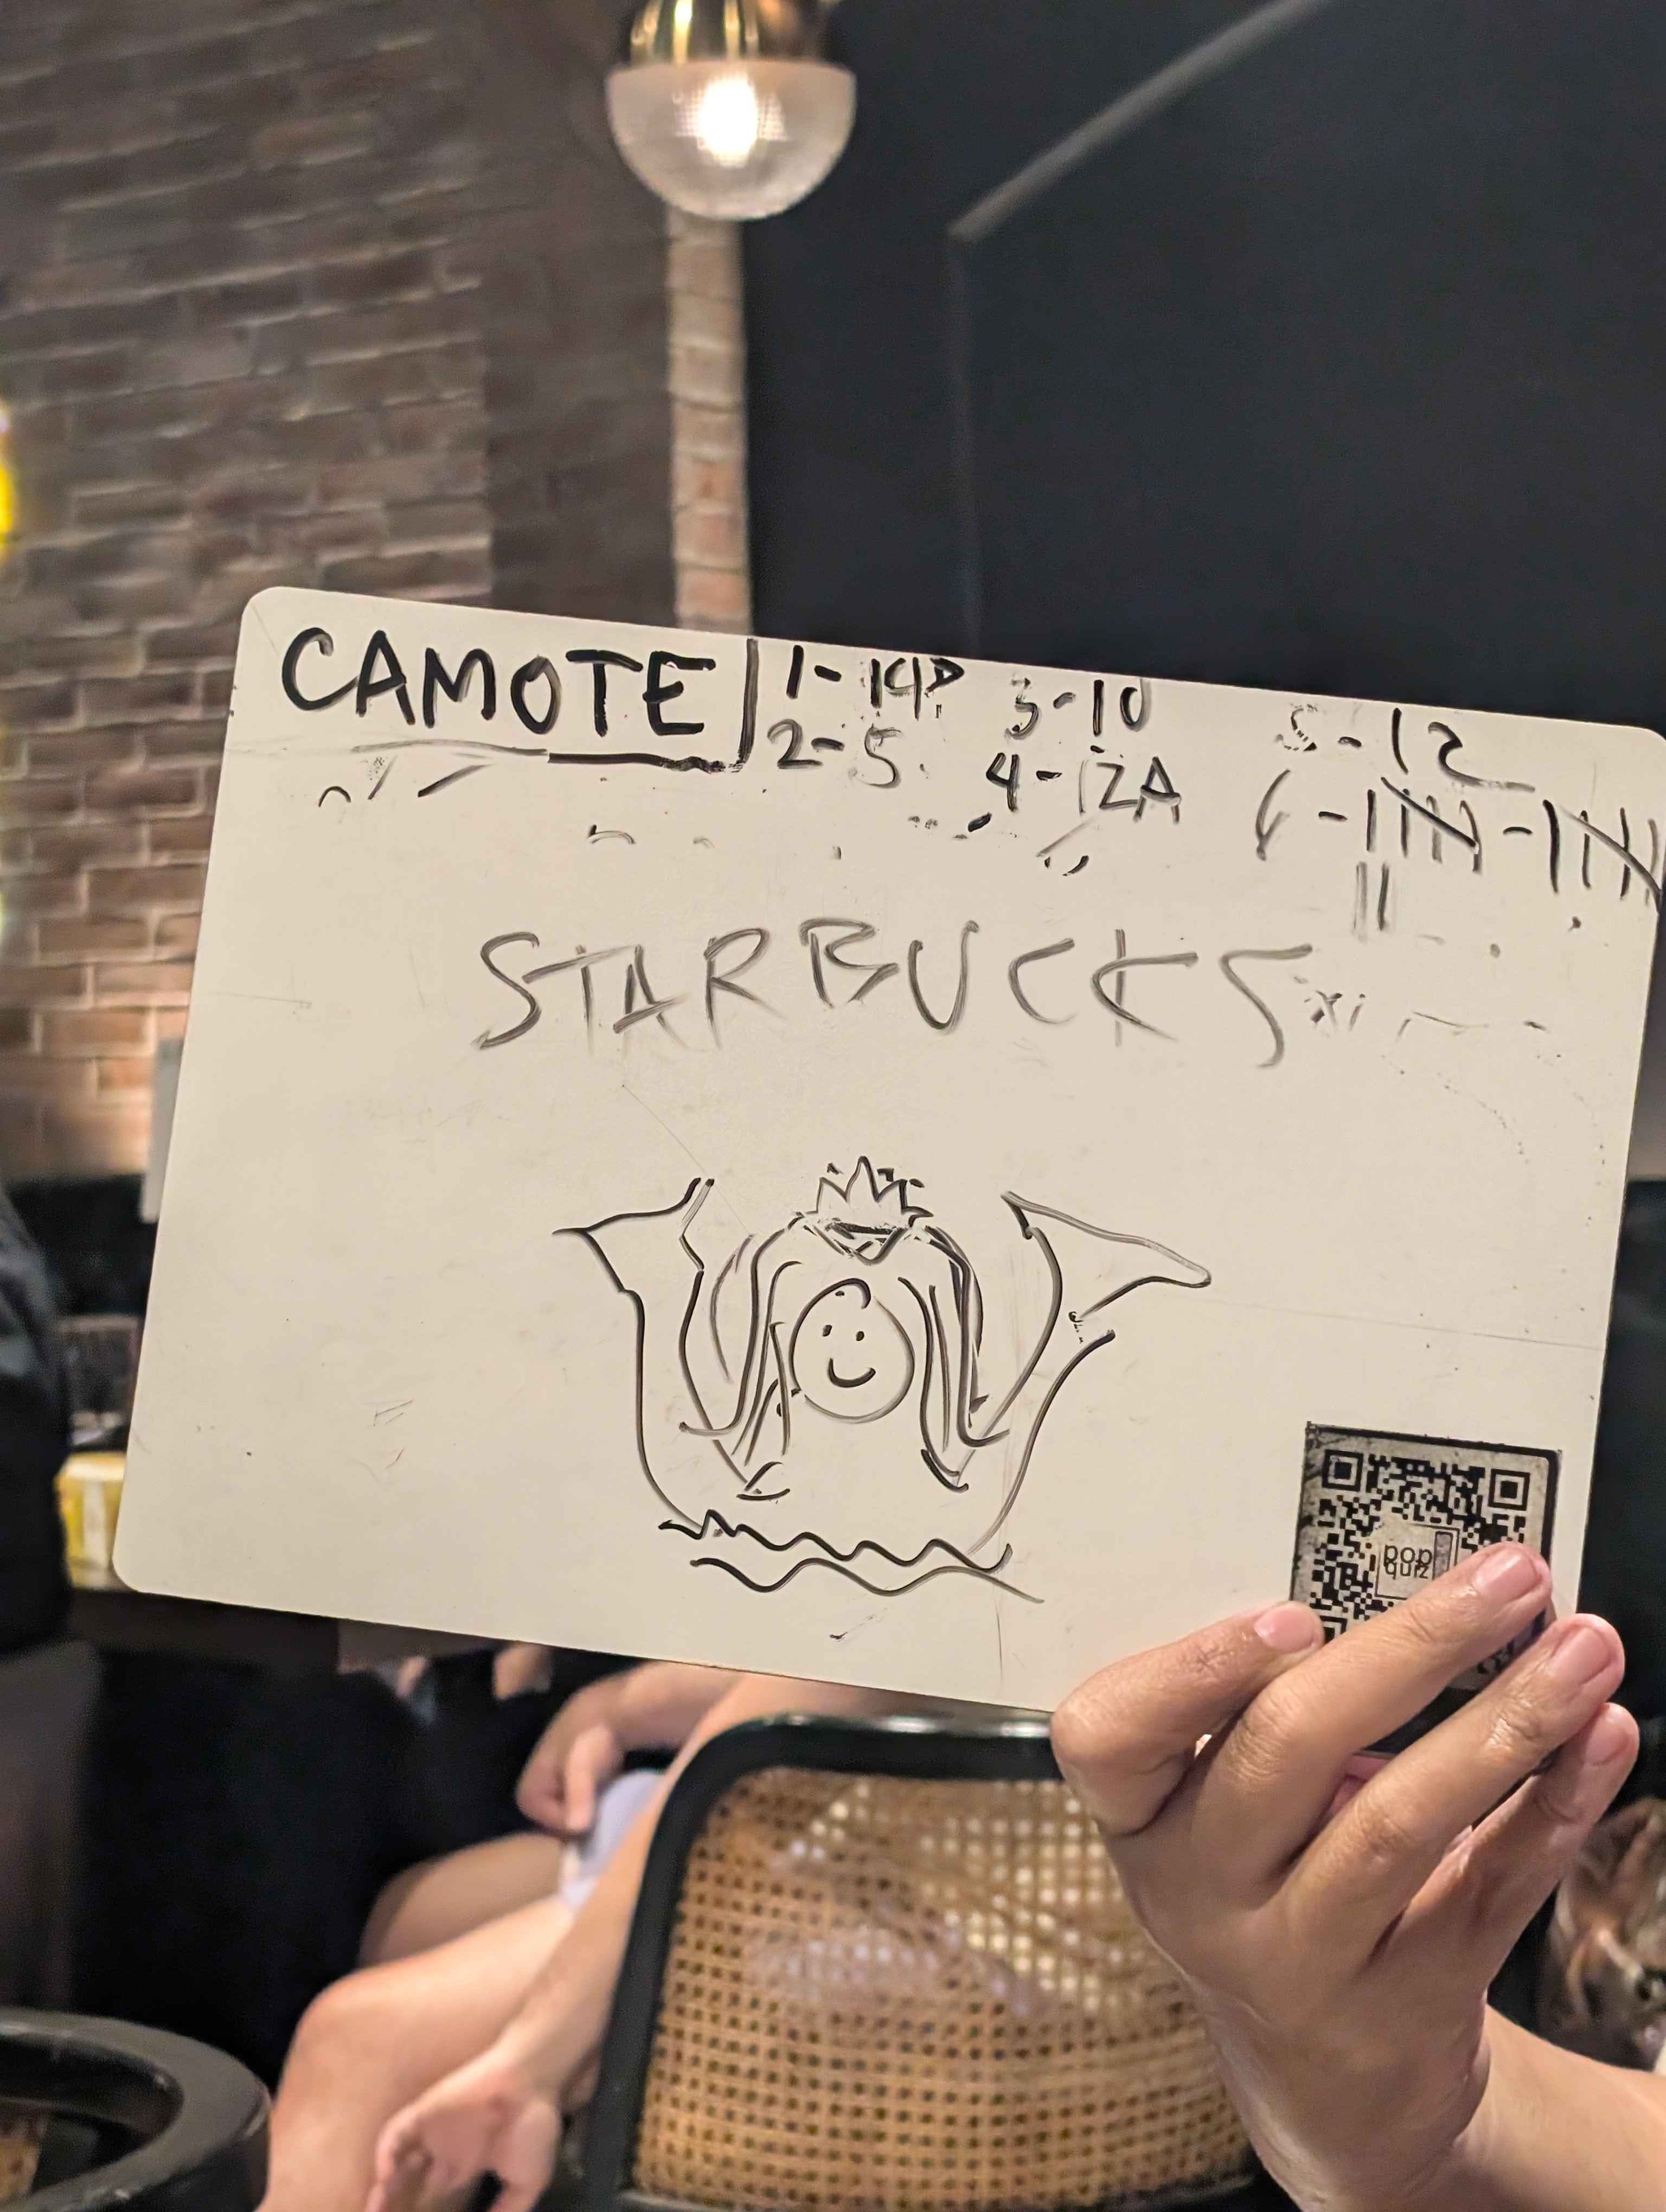 CAMOTE
1- 14P 3-10 5-12
2-5 4-12A 6 -
STARBUCKS
pop
quiz